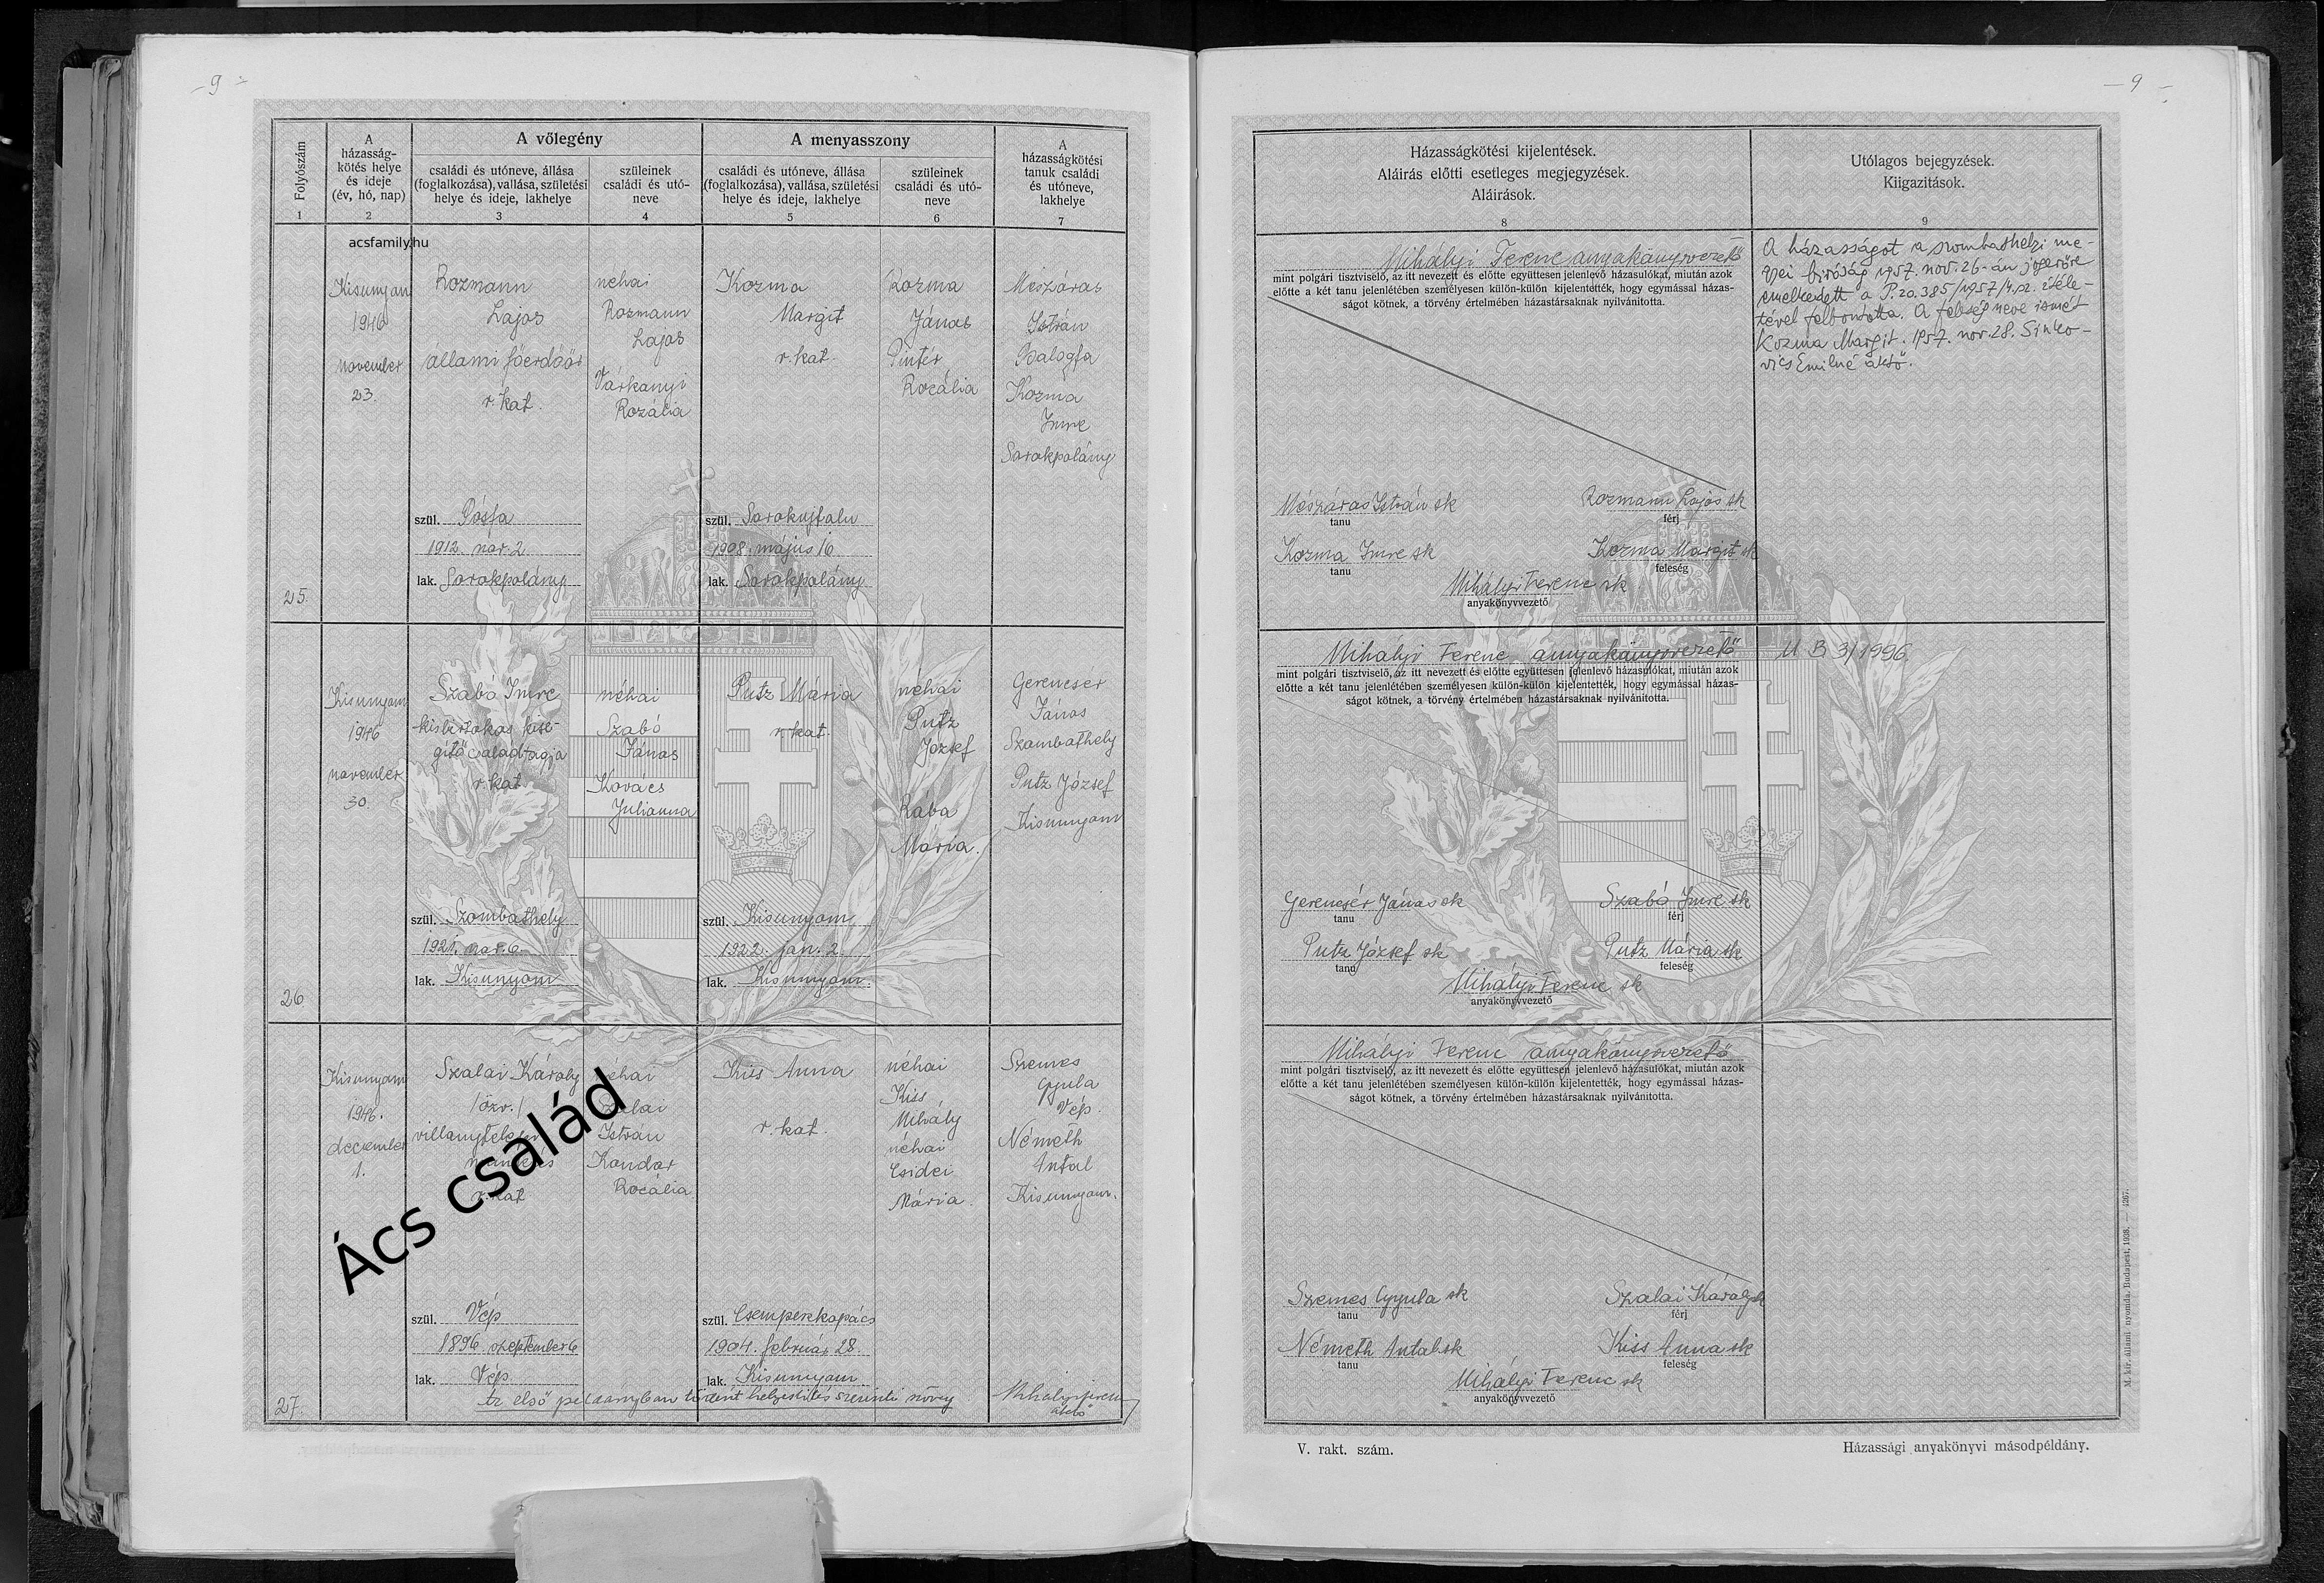 – 9 –
Folyószám
1
A
házasság-
kötés helye
és ideje
(év, hó, nap)
2
A vőlegény
családi és utóneve, állása
(foglalkozása), vallása, születési
helye és ideje, lakhelye
3
szüleinek
családi és utó-
neve
4
A menyasszony
családi és utóneve, állása
(foglalkozása), vallása, születési
helye és ideje, lakhelye
5
szüleinek
családi és utó-
neve
6
A
házasságkötési
tanuk családi
és utóneve,
lakhelye
7
acsfamily.hu
25.
Kisunyom
1946
november
23.
Rozmann
Lajos
állami főerdőőr
r. kat.
szül. Pósfa
1912. már. 2
lak. Sorokpolány
néhai
Rozmann
Lajos
Várkonyi
Rozália
Kozma
Margit
r. kat.
szül. Sorokujfalu
1908. május 16
lak. Sorokpolány
Kozma
János
Pintér
Rozália
Mészáros
István
Balogfa
Kozma
Imre
Sorokpolány
26.
Kisunyom
1946
november
30.
Szabó Imre
kisbirtokos kise-
gitő családtagja
r. kat.
szül. Szombathely
1921. már. 6.
lak. Kisunyom
néhai
Szabó
János
Kovács
Julianna
Putz Mária
r. kat.
szül. Kisunyom
1922. jan. 2
lak. Kisunyom.
néhai
Putz
József
Rába
Mária.
Gerencsér
János
Szombathely
Putz József
Kisunyom
27.
Kisunyom
1946.
december
1.
Szalai Károly
/özv./
villanytelep
r. kat
szül. Vép
1896. szeptember 6
lak. Vép.
néhai
Szalai
István
Kondor
Rozália
Kiss Anna
r. kat.
szül. Csempeszkopács
1904. február 28.
lak. Kisunyom
néhai
Kiss
Mihály
néhai
Csidei
Mária.
Szemes
Gyula
Vép.
Németh
Antal
Kisunyom.
Az első példányban történt helyesbítés szerinti növeg
Mihályi Ferenc
aktő
Ács család
– 9 –
Házasságkötési kijelentések.
Aláirás előtti esetleges megjegyzések.
Aláirások.
8
Utólagos bejegyzések.
Kiigazitások.
9
Mihályi Ferenc anyakönyvvezető
mint polgári tisztviselő, az itt nevezett és előtte együttesen jelenlevő házasulókat, miután azok
előtte a két tanu jelenlétében személyesen külön-külön kijelentették, hogy egymással házas-
ságot kötnek, a törvény értelmében házastársaknak nyilvánitotta.
Mészáros István sk
tanu
Rozmann Lajos sk
férj
Kozma Imre sk
tanu
Kozma Margit sk
feleség
Mihályi Ferenc sk
anyakönyvvezető
A házasságot a szombathelyi me-
gyei biróság 1957. nov. 26-án jogerőre
emelkedett a P. 20.385/1957/4. sz. itéle-
tével felbontotta. A feleség neve ismét
Kozma Margit. 1957. nov. 28. Sinko-
vics Emilné aktő.
Mihályi Ferenc anyakönyvvezető
mint polgári tisztviselő, az itt nevezett és előtte együttesen jelenlevő házasulókat, miután azok
előtte a két tanu jelenlétében személyesen külön-külön kijelentették, hogy egymással házas-
ságot kötnek, a törvény értelmében házastársaknak nyilvánitotta.
Gerencsér János sk
tanu
Szabó Imre sk
férj
Putz József sk
tanu
Putz Mária sk
feleség
Mihályi Ferenc sk
anyakönyvvezető
U B 3/1996.
Mihályi Ferenc anyakönyvvezető
mint polgári tisztviselő, az itt nevezett és előtte együttesen jelenlevő házasulókat, miután azok
előtte a két tanu jelenlétében személyesen külön-külön kijelentették, hogy egymással házas-
ságot kötnek, a törvény értelmében házastársaknak nyilvánitotta.
Szemes Gyula sk
tanu
Szalai Károly sk
férj
Németh Antal sk
tanu
Kiss Anna sk
feleség
Mihályi Ferenc sk
anyakönyvvezető
M. kir. állami nyomda, Budapest, 1938. — 4267.
V. rakt. szám.
Házassági anyakönyvi másodpéldány.